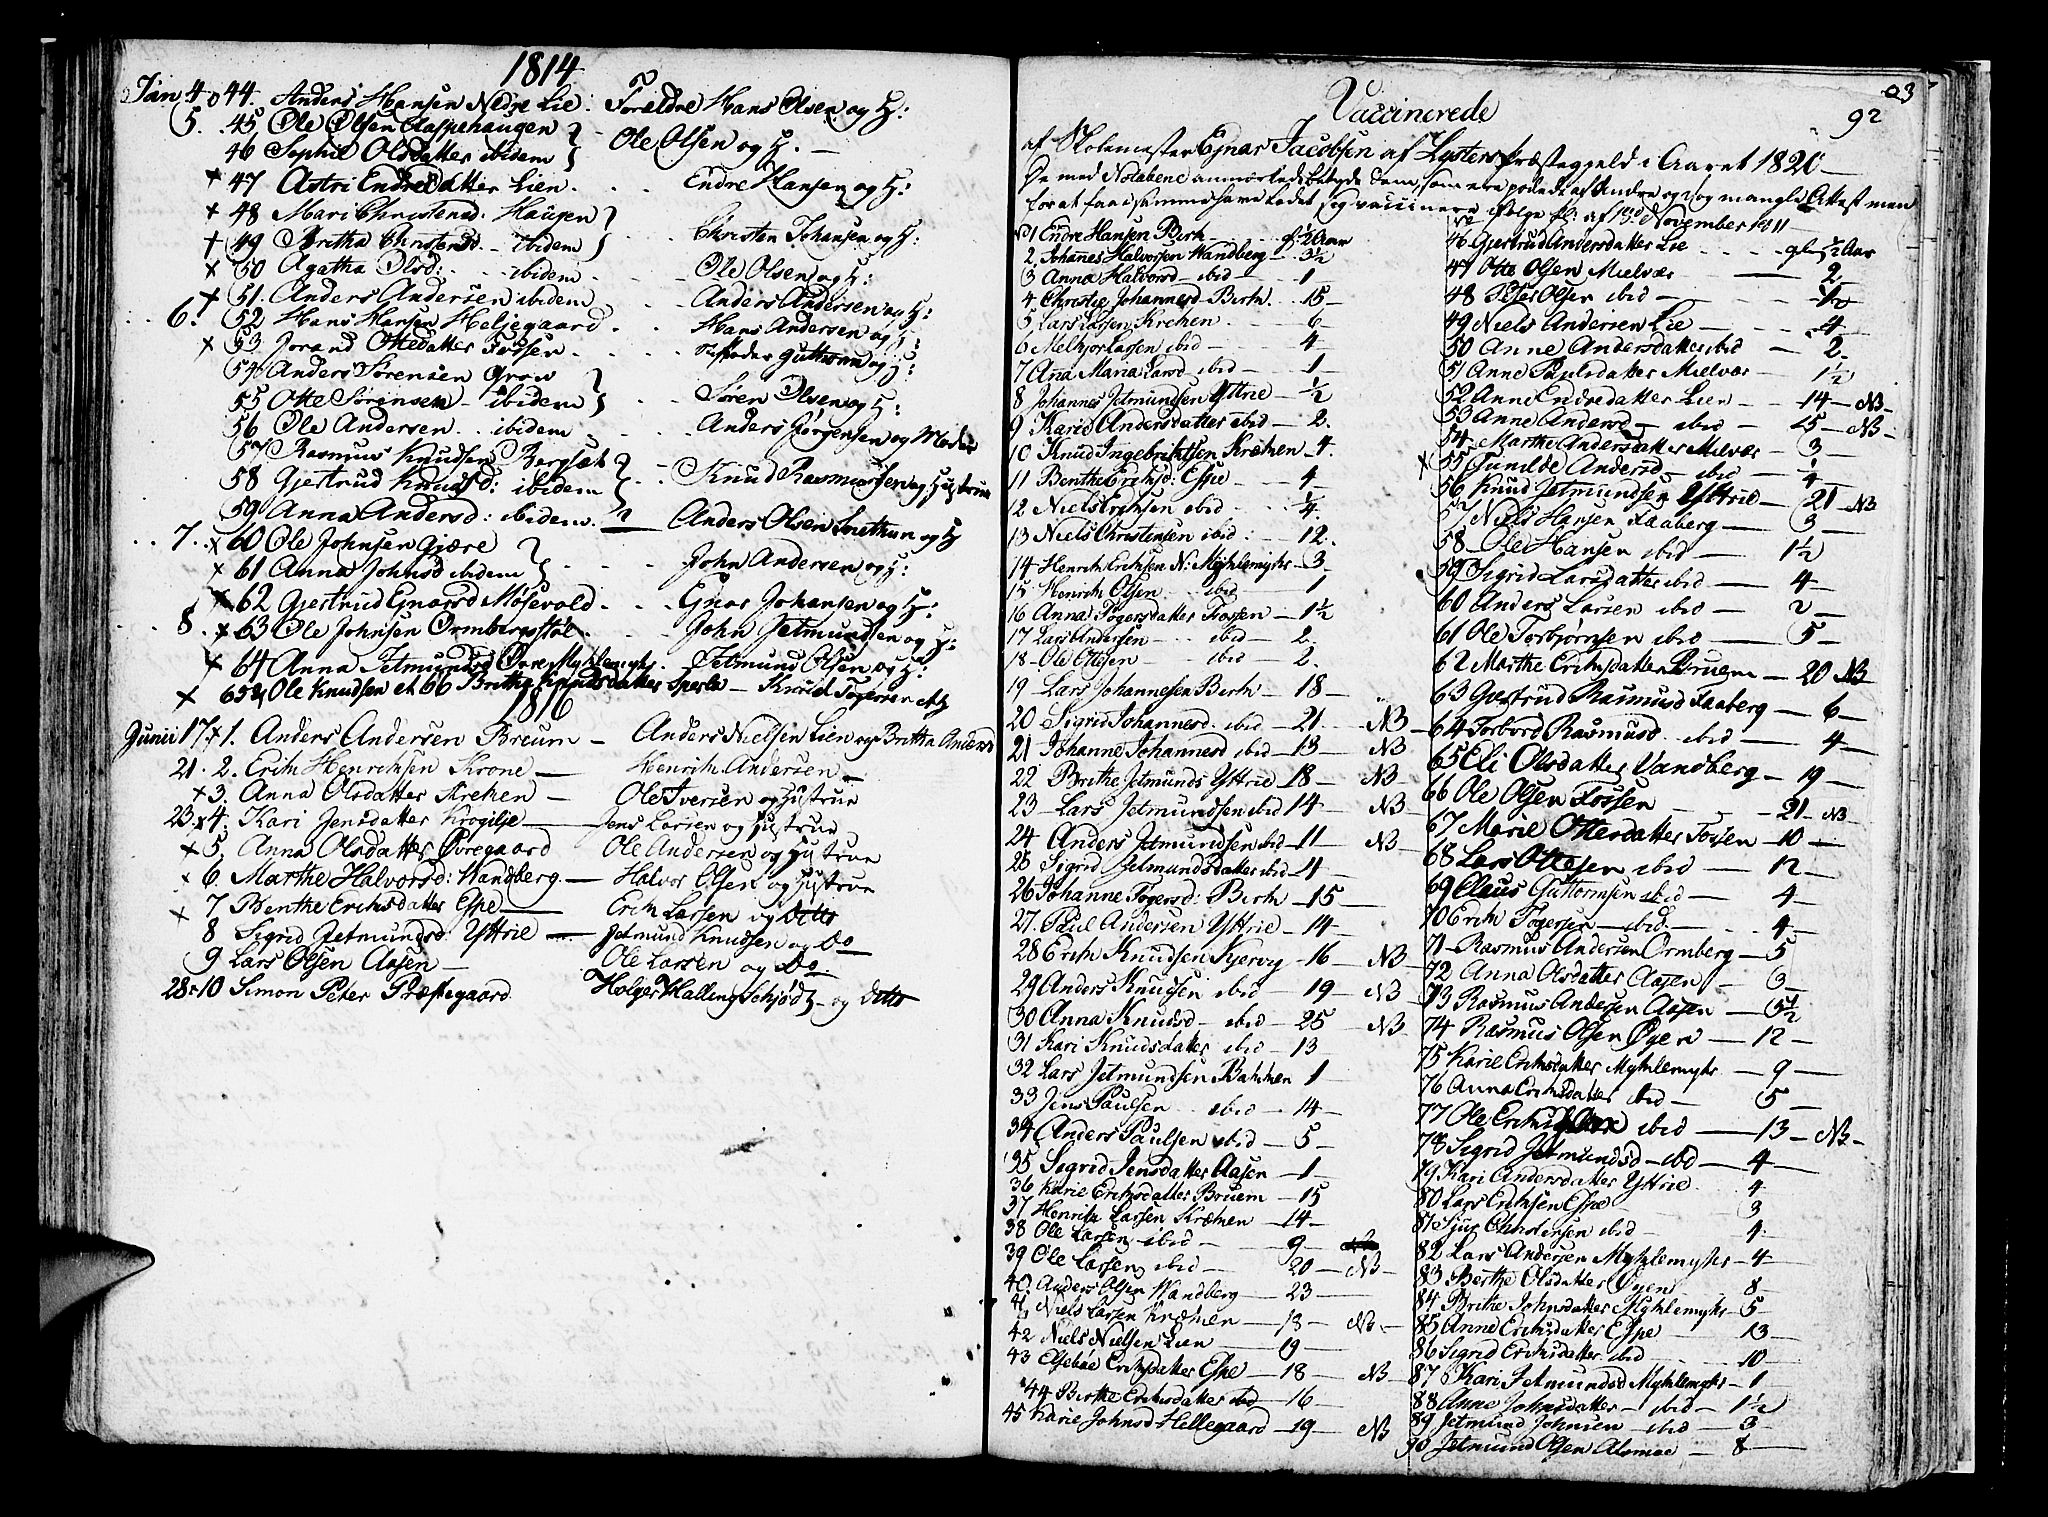 1814
Jan 4. 44. Anders Hansen Nedre Lie. Foreldre Hans Olsen og H:
5. 45 Ole Olsen Claspehaugen } Ole Olsen og H. —
46 Sophie Olsdatter ibidem }
+ 47 Astri Endredatter Lien. . . . Endre Hansen og H:
+ 48 Mari Christensd: Haugen } Christen Johansen og H:
+ 49 Britha Christensd - ibidem }
+ 50 Agatha Olsd: . . ibidem . . Ole Olsen og H:
+ 51. Anders Andersen ibidem . . Anders Andersen og H:
6. 52 Hans Hansen Heljegaard . . Hans Andersen og H:
+ 53 Jorand Ottedatter Fossen . . Guttorm og H:
54 Anders Sørensen Grow } Søren Olsen og H:
55 Otte Sørensen - ibidem }
56 Ole Andersen . . ibidem . . Anders Jørgensen og Moder
57 Rasmus Knudsen Bergsæt } Knud Rasmussen og Hustrue
58 Gjertrud Knudsd: ibidem }
59 Anna Andersd: ibidem. — Anders Olsen og H
7. + 60 Ole Johnsen Gjære } John Andersen og H:
+ 61 Anna Johnsd ibidem }
+ 62 Gjertrud Egnarsd Møsevold . . . Egnar Johansen og H:
8. + 63 Ole Johnsen Ormbergstøl . . . John Jetmundsen og H:
+ 64 Anna Jetmundsd Øvre Myhlemyhr. Jetmund Olsen og H:
+ 65 Ole Knudsen et 66 Brithe Knudsdatter Sperle — Knud Togersen et H
1816
Junii 17 + 1. Anders Andersen Breum — Anders Nielsen Lien og Britta Andersd
21. 2. Erik Henriksen Krone — Henrik Andersen —
+ 3. Anna Olsdatter Krehen — Ole Iversen og Hustrue
23 + 4. Kari Jensdatter Krogilje — Jens Larsen og Hustrue
+ 5. Anna Olsdatter Øvregaard Ole Andersen og Hustrue
+ 6. Marthe Halvorsd: Wandberg — Halvor Olsen og Hustrue
+ 7 Benthe Eriksdatter Espe — Erik Larsen og Ditto
8 Sigrid Jetmundsd: Yttrie — Jetmund Knudsen og Do
9 Lars Olsen Aasen — Ole Larsen og Do
28 + 10 Simon Peter Præstegaard Holger Halling Schjødt — og Ditto
03
92
Vaccinerede
af Skolemester Egnar Jacobsen af Lysters Præstegjeld i Aaret 1820 —
De med Notabene anmærkede betyde dem, som ere podede af Andre og og mangle Attest men
for at faae samme have ladet sig vaccinere ifølge af 13d November 1811 —
No 1 Endre Hansen Birk . . gl. ½ Aar
2. Johanes Halvorsen Wandberg — 3½
3 Anna Halvorsd - ibid - 1
4 Christie Johannesd - Birk . . 15
5 Lars Larsen Krehen . . . 6
6 Melkjor Larsen ibid . . 4
7 Ana Maria Larsd ibid . . 1
8 Johannes Jetmundsen Yttrie — ½
9 Karid Andersdatter ibid - 2.
10 Knud Ingebriktsen Kræhen 4.
11 Benthe Eriksd: Espe — 4
12 Niels Eriksen ibid . . ¼
13 Niels Christensen ibid . . 12.
14 Henrik Eriksen N: Myhlemyhr 3
15 Henrik Olsen . . . ibid — 1
16 Anna Togersdatter Fossen — 1½
17 Lars Andersen — . . ibid — 2.
18 - Ole Ottesen — ibid — 2.
19 — Lars Johannesen Birk — 18 —
20 — Sigrid Johannesd . ibid — 21. — NB
21 Johanne Johannesd ibid — 13 — NB
22 Brithe Jetmunds Yttrie — 18 — NB
23 — Lars Jetmundsen ibid 14 — NB
24 Anders Jetmundsen ibid — 11 — NB
25 Sigrid Jetmundsdatter ibid — 4 —
26 Johanne Togersd: Birk — 15 —
27. Paul Andersen Yttrie — 14 —
28 Erik Knudsen Kjervig — 16 — NB
29 Anders Knudsen ibid — 19 — NB
30 Anna Knudsd — ibid — 25 — NB
31 Kari Knudsdatter ibid — 13
32 Lars Jetmundsen Bakken 1 —
33 Jens Paulsen . . ibid — 14 —
34 Anders Paulsen ibid — 5 —
35 Sigrid Jensdatter Aasen — 1 —
36 Karie Eriksdatter Bruem — 15
37 Henrik Larsen Kræhen — 14 —
38 Ole Larsen ibid — 9 —
39 Ole Larsen ibid — 20 — NB
40. Anders Olsen Wandberg — 23 —
41 Niels Larsen Kræhen — 13 — NB —
42 Niels Nielsen Lien — 19 —
43 Elsebøe Eriksdatter Espe — 18 — NB
44 Birthe Eriksdatter ibid — 16 —
45 Karie Johnsd Hellegaard — 19 — NB
46 Gjertrud Andersdatter Lie . . . gl ½ Aar
47 Otte Olsen Mielvær — 2
48 Peter Olsen ibid — 1½
49 Niels Andersen Lie — 4 —
50 Anne Andersdatter ibid — 2.
51 Anne Paulsdatter Mielvær — 1½
52 Anne Endredatter Lien — 14 — NB —
53 Anne Andersd — ibid — 25 — NB —
54. Marthe Andersdatter Mielvær — 3 —
+ 55 Gunilde Andersd — ibid — ¼ —
56 Knud Jetmundsen Yttrie — 21 — NB
57 Niels Hansen Faaberg — 3 —
58 — Ole Hansen ibid — 1½
59 Sigrid Larsdatter ibid — 4 —
60 Anders Larsen ibid — 2 —
61 Ole Torbjørnsen ibid — 5 —
62 Marthe Eriksdatter Bruem — 20 NB
63 Gjertrud Rasmusd Faaberg — 6 —
64 Torbord Rasmusd . ibid — 4 —
65 Eli Olsdatter Vandberg — 19 —
66 Ole Olsen Fossen — 21 — NB
67 Marie Ottesdatter Fossen — 10 —
68 Lars Ottesen ibid — 12 —
69 Claus Guttormsen ibid — 4 —
70 Erik Togersen — ibid. — 4 —
71 — Rasmus Andersen Ormberg — 5
72 Anna Olsdatter Aasen — 3 —
73 Rasmus Andersen Aasen — 5½
74 Rasmus Olsen Øyen — 12 —
75 Karie Eriksdatter Myhlemyhr. — 9 —
76 Anna Eriksdatter ibid — 5 —
77 Ole Eriksen ibid — 13 — NB —
78 Sigrid Jetmundsd — ibd — 4 —
79 Kari Andersdatter Yttrie . 4
80 Lars Eriksen Espe — 3
81 Sjur Christensen ibid — 4.
82 Lars Andersen Myhlemyhr — 4
83 Berthe Olsdatter Øyen — 8
84 Brithe Johnsdatter Myhlemyhr 5 —
85 Anne Eriksdatter Espe — 13 —
86 Sigrid Eriksdatter . ibid — 10 —
87 Kari Jetmundsd Myhlemyhr — 1
88 Anne Johnsdatter — ibid — 1½
89 Jetmund Johnsen ibid — 3
90 Jetmund Olsen Alsmoe — 8 —